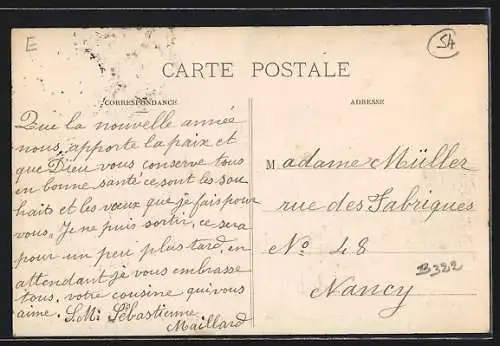 E
54
CARTE POSTALE
CORRESPONDANCE
Que la nouvelle année
nous apporte la paix et
que Dieu vous conserve tous
en bonne santé ce sont les sou
haits et les vœux que je fais pour
vous. Je ne puis sortir, ce sera
pour un peu plus tard, en
attendant je vous embrasse
tous, votre cousine qui vous
aime. S. M: Sébastienne
Maillard
ADRESSE
Madame Müller
rue des Fabriques
No 48
B322
Nancy